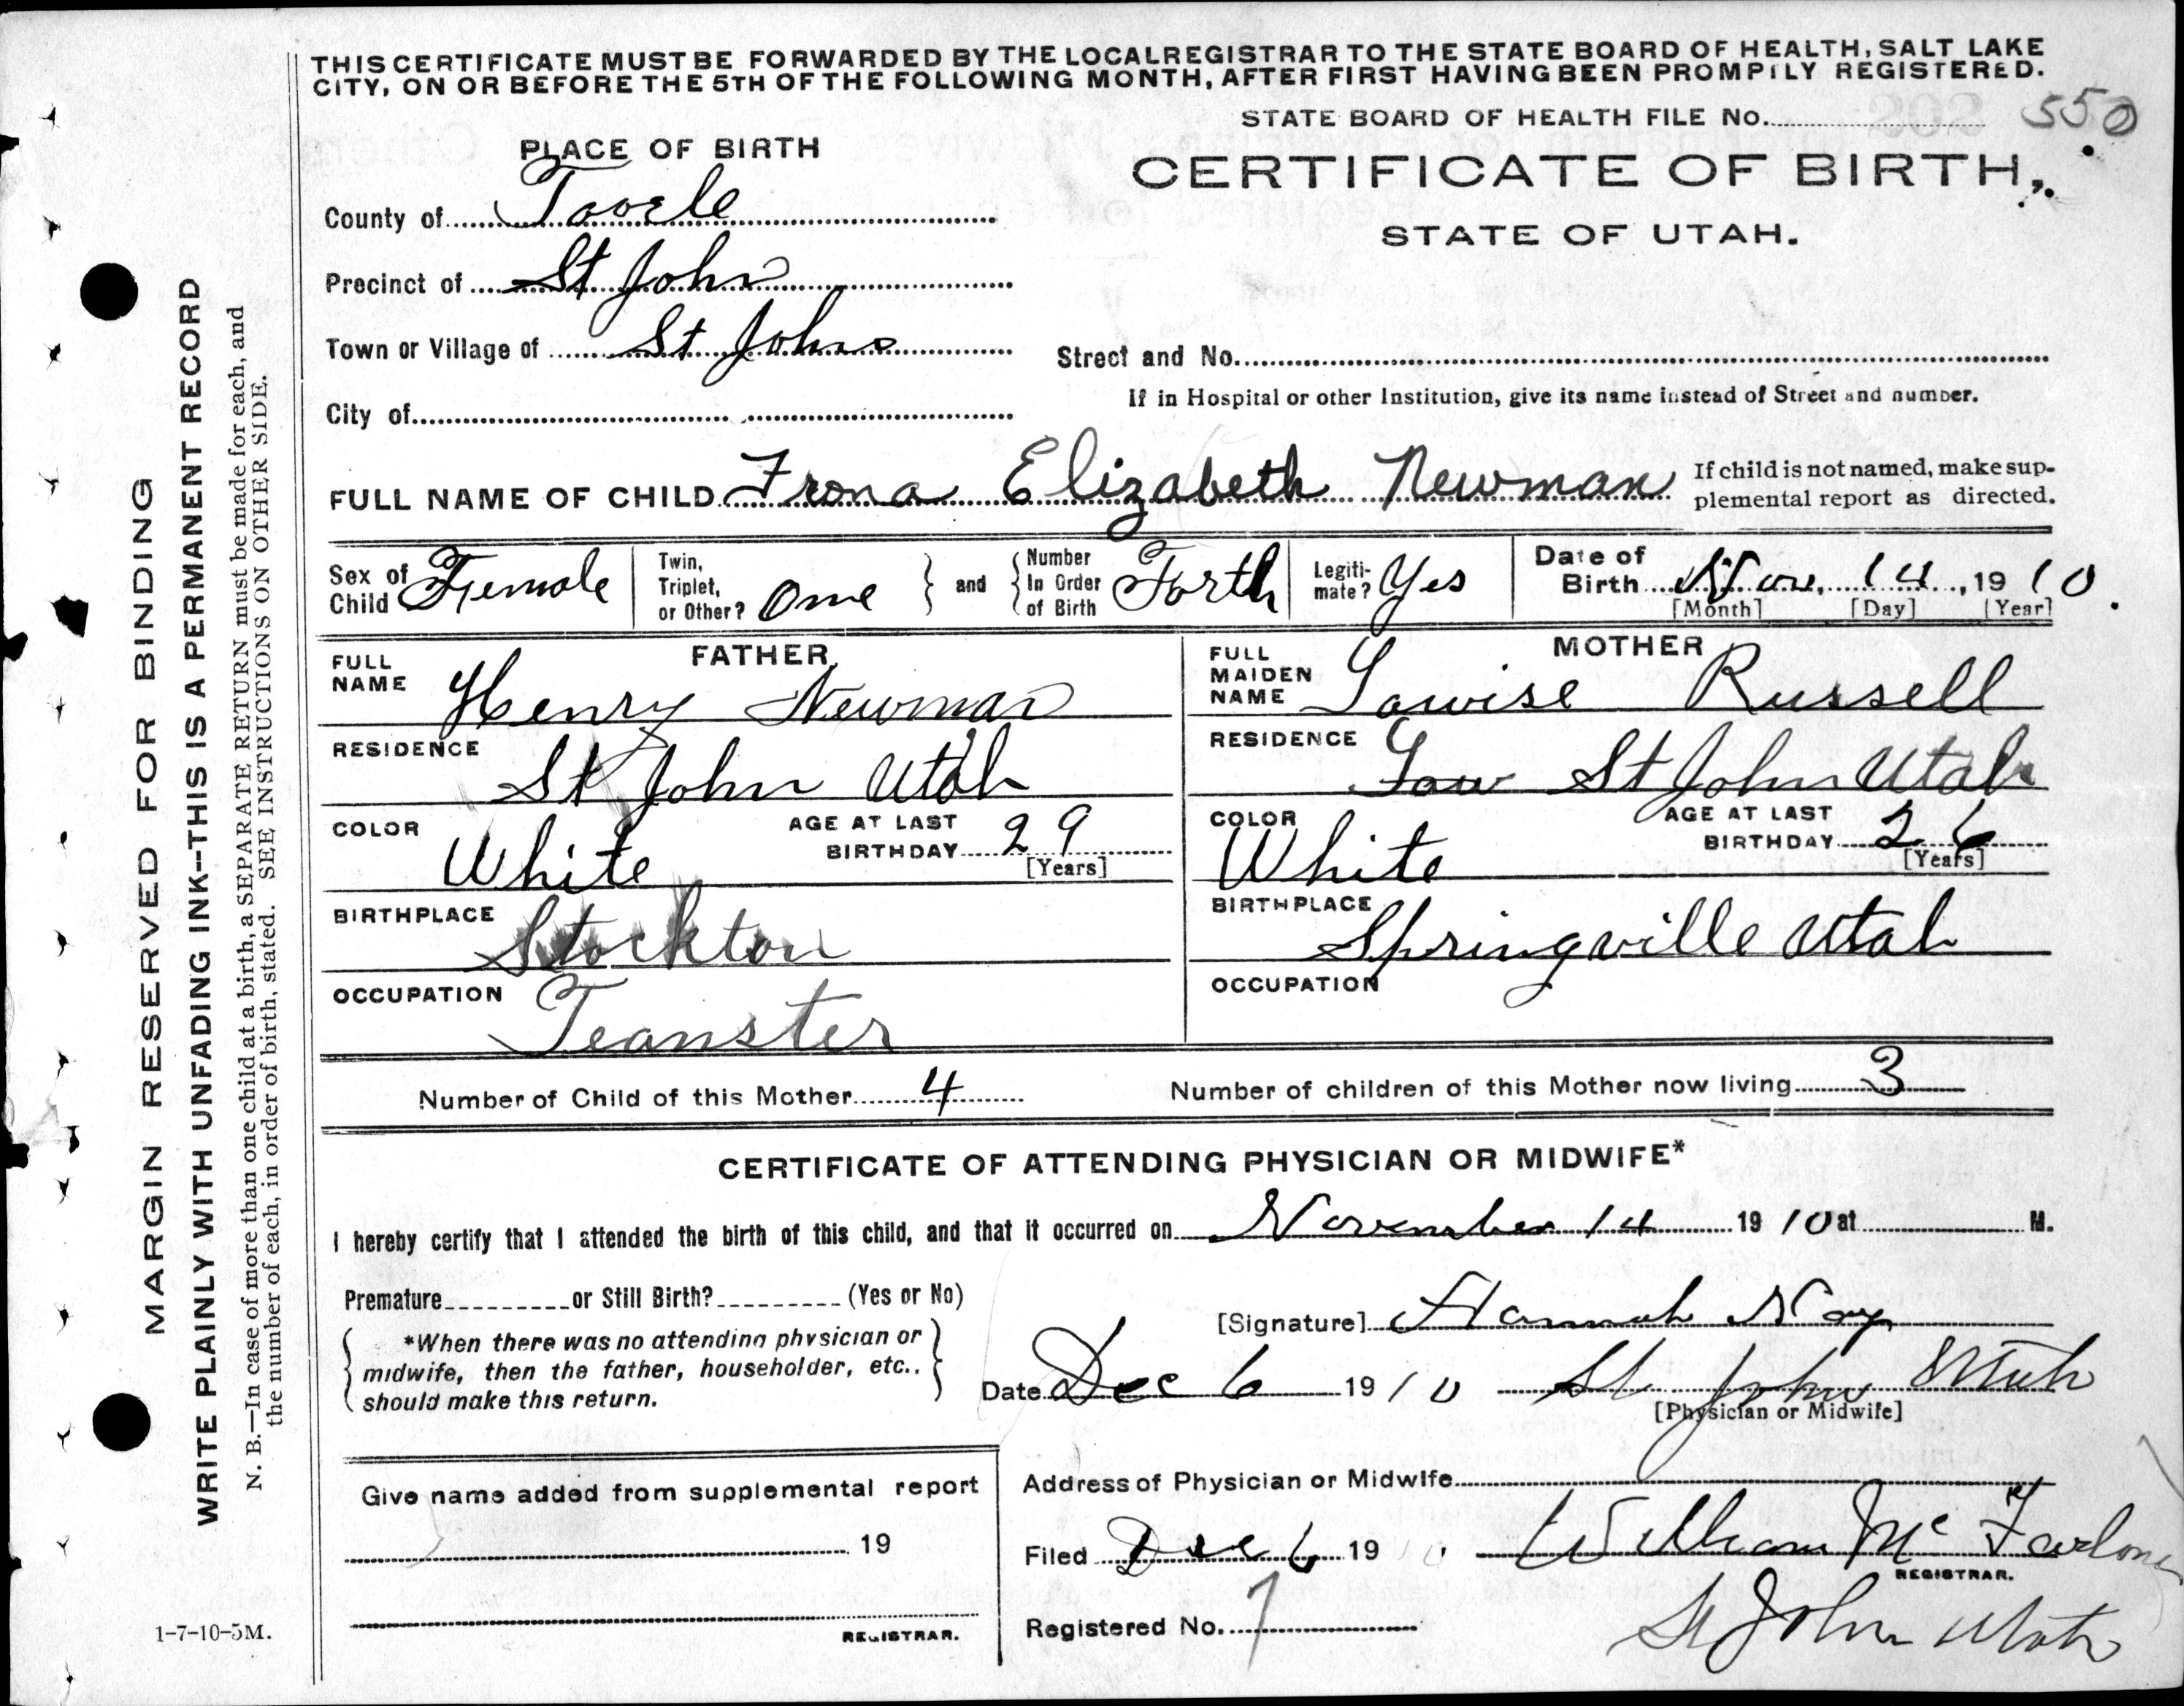 THIS CERTIFICATE MUST BE FORWARDED BY THE LOCAL REGISTRAR TO THE STATE BOARD OF HEALTH, SALT LAKE
CITY, ON OR BEFORE THE 5TH OF THE FOLLOWING MONTH, AFTER FIRST HAVING BEEN PROMPTLY REGISTERED.
STATE BOARD OF HEALTH FILE No. 550
PLACE OF BIRTH
CERTIFICATE OF BIRTH,
STATE OF UTAH.
County of Tooele
Precinct of St John
Town or Village of St Johns
Street and No.
If in Hospital or other Institution, give its name instead of Street and number.
City of
FULL NAME OF CHILD Frona Elizabeth Newman
If child is not named, make sup-
plemental report as directed.
Sex of Child Female
Twin, Triplet, or Other? One
and
Number In Order of Birth Forth
Legiti-mate? Yes
Date of Birth Nov, 14, 1910.
[Month] [Day] [Year]
FATHER
FULL NAME Henry Newman
RESIDENCE St John Utah
COLOR White
AGE AT LAST BIRTHDAY 29
[Years]
BIRTHPLACE Stockton
OCCUPATION Teanster
MOTHER
FULL MAIDEN NAME Lowise Russell
RESIDENCE St John Utah
COLOR White
AGE AT LAST BIRTHDAY 26
[Years]
BIRTHPLACE Springville Utah
OCCUPATION
Number of Child of this Mother 4
Number of children of this Mother now living 3
CERTIFICATE OF ATTENDING PHYSICIAN OR MIDWIFE*
I hereby certify that I attended the birth of this child, and that it occurred on November 14 1910 at M.
Premature or Still Birth? (Yes or No)
*When there was no attending physician or
midwife, then the father, householder, etc..
should make this return.
[Signature] Hannah Nay
Date Dec 6 1910 St John Utah
[Physician or Midwife]
Give name added from supplemental report
19
REGISTRAR.
Address of Physician or Midwife
Filed Dec 6 1910. William Mc Farlone
REGISTRAR.
Registered No. 7
St John Utah
1-7-10-5M.
MARGIN RESERVED FOR BINDING
WRITE PLAINLY WITH UNFADING INK--THIS IS A PERMANENT RECORD
N. B.—In case of more than one child at a birth, a SEPARATE RETURN must be made for each, and
the number of each, in order of birth, stated. SEE INSTRUCTIONS ON OTHER SIDE.